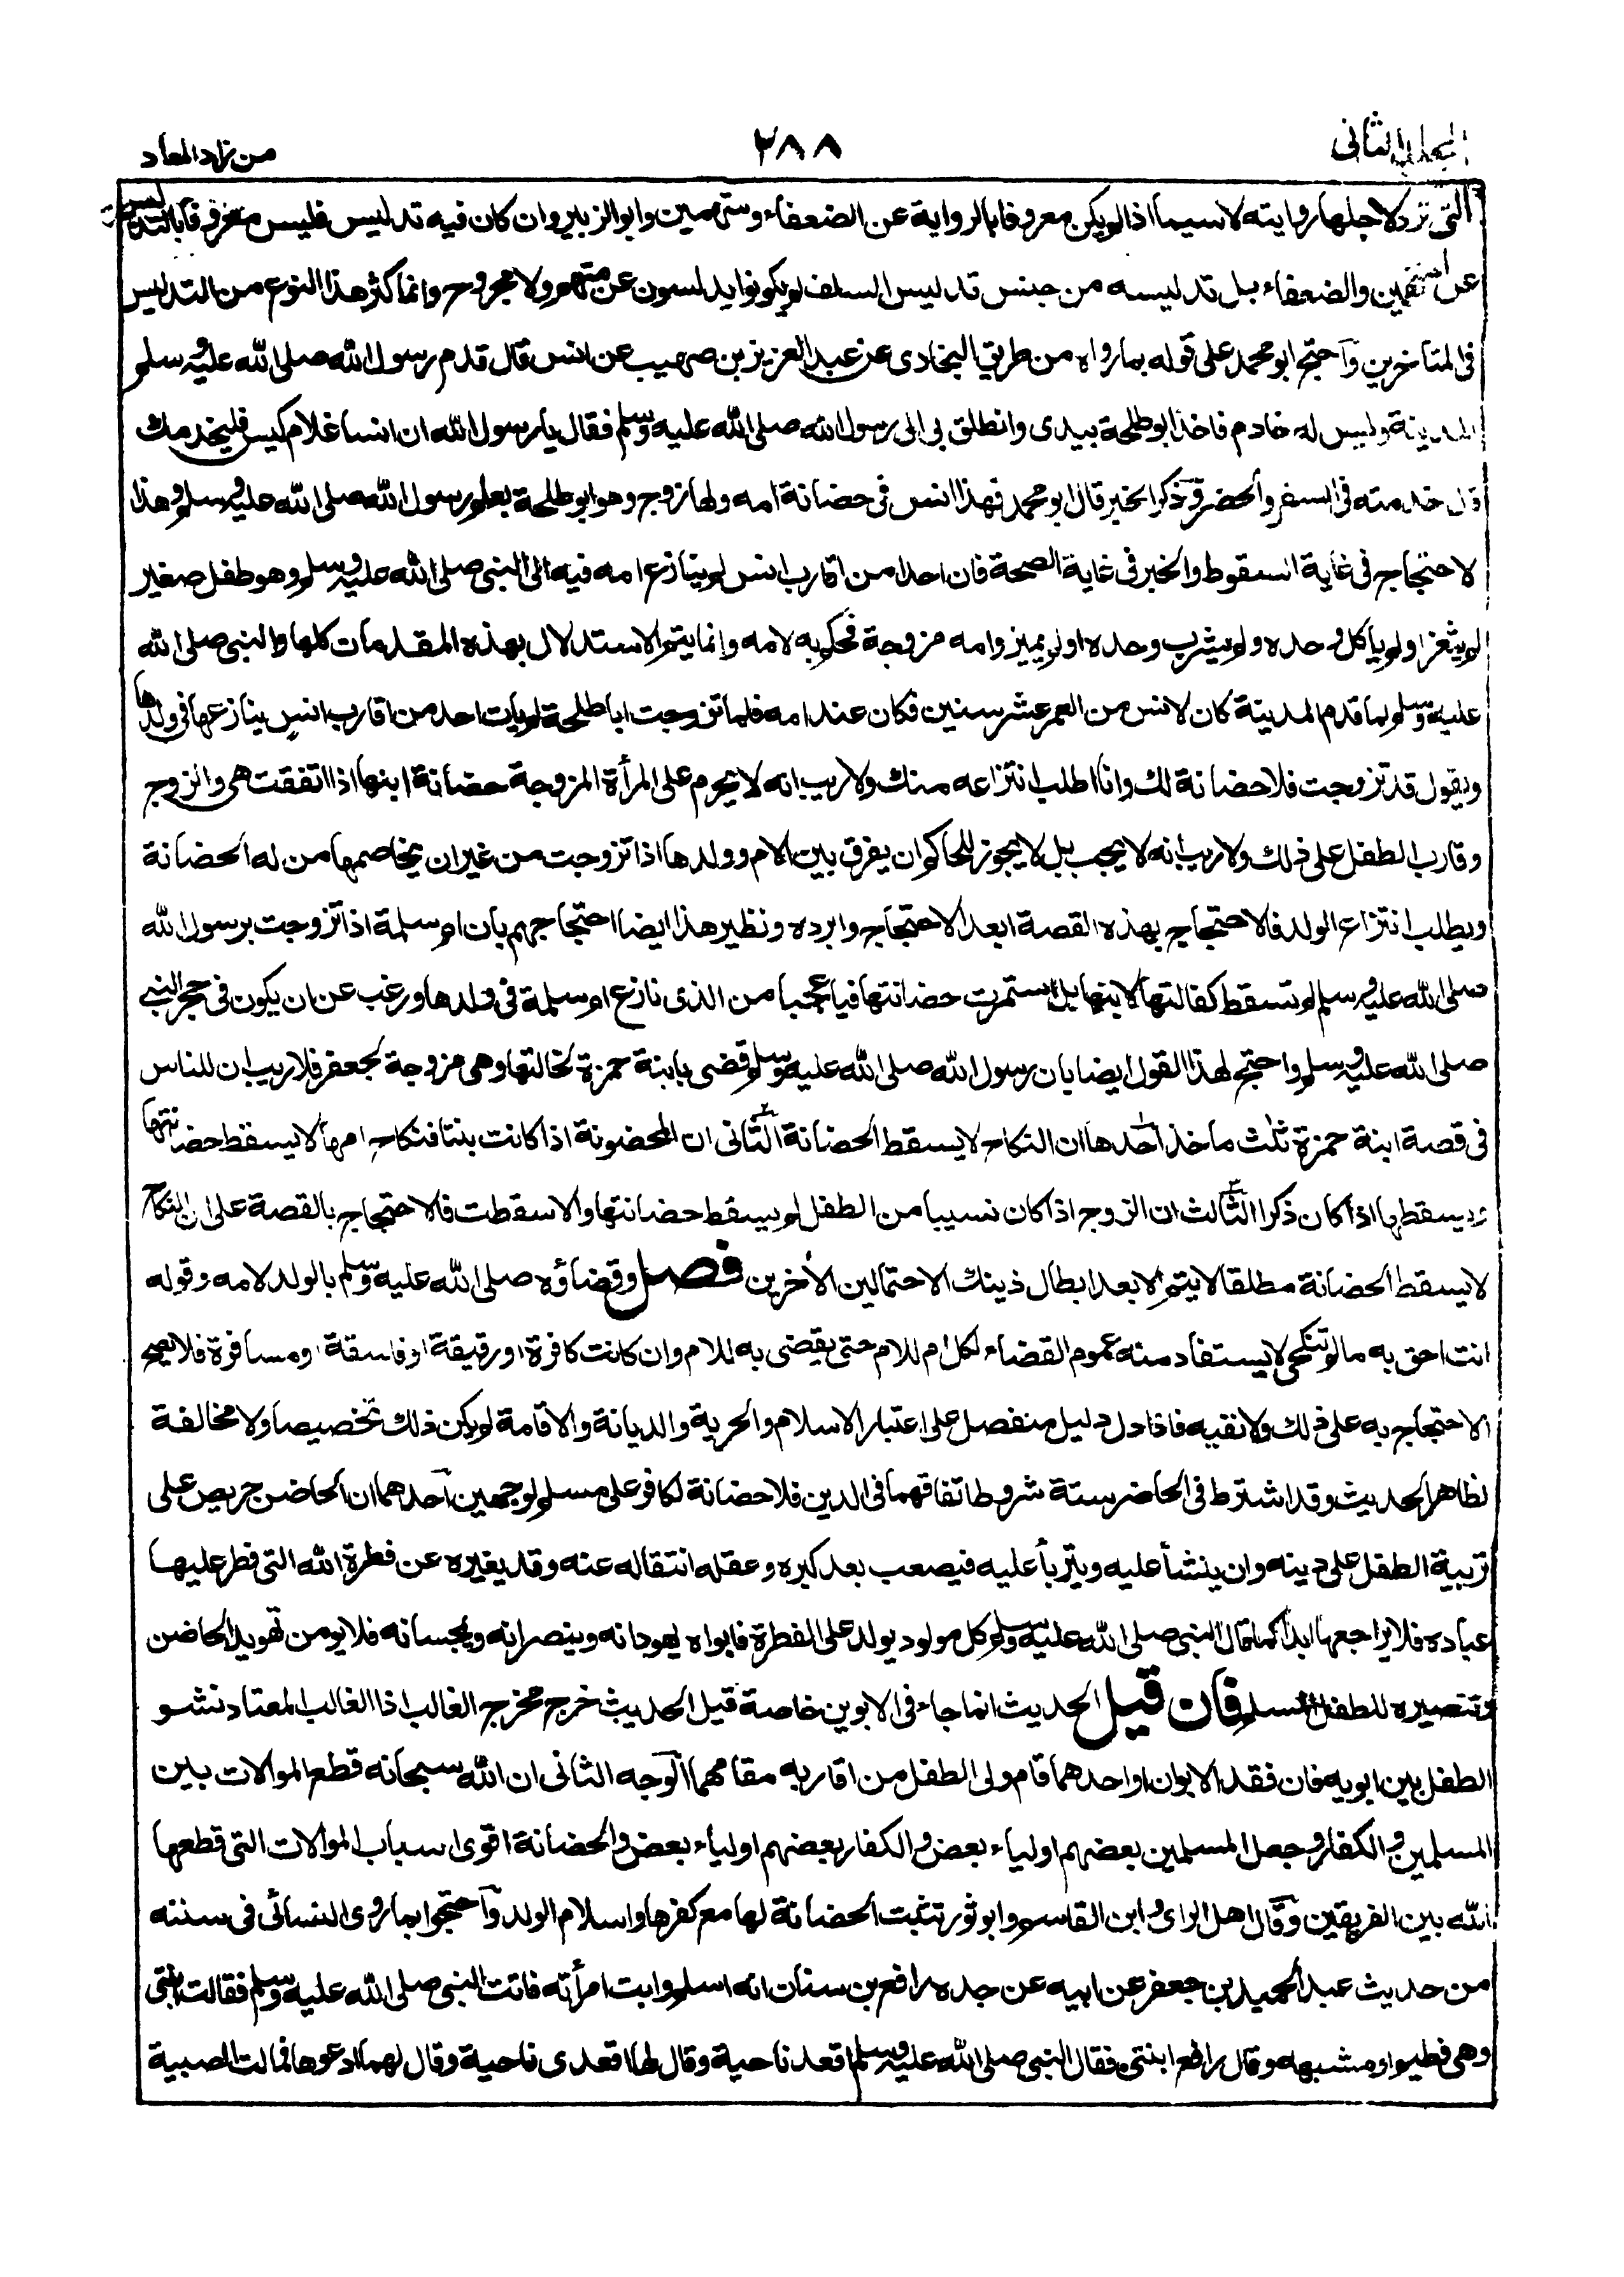 المجلد الثانى
٢٨٨
من زاد المعاد
التى ترد لاجلها روايته لاسيما اذا لم يكن معروفا بالرواية عن الضعفاء و متهمين وابو الزبير وان كان فيه تدليس فليس معروفا بالتدليس
عن المتهمين والضعفاء بل تدليسه من جنس تدليس السلف لم يكونوا يدلسون عن متهم ولا مجروح وانما كثر هذا النوع من التدليس
فى المتاخرين واحتج ابو محمد على قوله بما رواه من طريق البخارى عن عبد العزيز بن صهيب عن انس قال قدم رسول الله صلى الله عليه وسلم
المدينة وليس له خادم فاخذ ابو طلحة بيدى وانطلق بى الى رسول الله صلى الله عليه وسلم فقال يا رسول الله ان انسا غلام كيس فليخدمك
قال خدمته فى السفر والحضر وذكر الخبر قال ابو محمد فهذا انس فى حضانة امه ولها زوج وهو ابو طلحة بعلم رسول الله صلى الله عليه وسلم وهذا
لا حتجاج فى غاية السقوط والخبر فى غاية الصحة فان احدا من اقارب انس لم ينازع امه فيه الى النبى صلى الله عليه وسلم وهو طفل صغير
لم يثغر ولم ياكل وحده ولم يشرب وحده ولم يميز وامه مزوجة فحكم به لامه وانما يتم الاستدلال بهذه المقدمات كلها والنبى صلى الله
عليه وسلم لما قدم المدينة كان لانس من العمر عشر سنين فكان عند امه فلما تزوجت ابا طلحة لم يات احد من اقارب انس ينازعها فى ولدها
ويقول قد تزوجت فلا حضانة لك وانا اطلب انتزاعه منك ولا ريب انه لا يحرم على المرأة المزوجة حضانة ابنها اذا اتفقت هى والزوج
وقارب الطفل على ذلك ولا ريب انه لا يجب بل لا يجوز للحاكم ان يفرق بين الام وولدها اذا تزوجت من غير ان يخاصمها من له الحضانة
ويطلب انتزاع الولد فالاحتجاج بهذه القصة ابعد الاحتجاج وابرده ونظير هذا ايضا احتجاجهم بان ام سلمة اذا تزوجت برسول الله
صلى الله عليه وسلم لم تسقط كفالتها لابنها بل استمرت حضانتها فيا عجبا من الذى نازع ام سلمة فى ولدها ورغب عن ان يكون فى حجر النبى
صلى الله عليه وسلم واحتج لهذا القول ايضا بان رسول الله صلى الله عليه وسلم قضى بابنة حمزة لخالتها وهى مزوجة لجعفر فلا ريب ان للناس
فى قصة ابنة حمزة ثلث ماخذ احدها ان النكاح لا يسقط الحضانة الثانى ان المحضونة اذا كانت بنتا فنكاح امها لا يسقط حضانتها
ويسقطها اذا كان ذكرا الثالث ان الزوج اذا كان نسيبا من الطفل لم يسقط حضانتها والا سقطت فالاحتجاج بالقصة على ان النكاح
لا يسقط الحضانة مطلقا لا يتم الا بعد ابطال ذينك الاحتمالين الأخرين فصل وقضاؤه صلى الله عليه وسلم بالولد لامه وقوله
انت احق به ما لم تنكحى لا يستفاد منه عموم القضاء لكل ام للام حتى يقضى به للام وان كانت كافرة او رقيقة او فاسقة او مسافرة فلا يصح
الاحتجاج به على ذلك ولا نفيه فاذا دل دليل منفصل على اعتبار الاسلام والحرية والديانة والاقامة لم يكن ذلك تخصيصا ولا مخالفة
لظاهر الحديث وقد اشترط فى الحاضن ستة شروط اتفاقهما فى الدين فلا حضانة لكافر على مسلم لوجهين احدهما ان الحاضن حريص على
تربية الطفل على دينه وان ينشأ عليه ويتربأ عليه فيصعب بعد كبره وعقله انتقاله عنه وقد يغيره عن فطرة الله التى فطر عليها
عباده فلا يراجعها ابدا كما قال النبى صلى الله عليه وسلم كل مولود يولد على الفطرة فابواه يهودانه وينصرانه ويمجسانه فلا يومن تهويد الحاضن
وتنصيره للطفل المسلم فان قيل الحديث انما جاء فى الابوين خاصة قيل الحديث خرج مخرج الغالب اذا الغالب المعتاد نشو
الطفل بين ابويه فان فقد الابوان او احدهما قام ولى الطفل من اقاربه مقامهما الوجه الثانى ان الله سبحانه قطع الموالات بين
المسلمين والكفار وجعل المسلمين بعضهم اولياء بعض والكفار بعضهم اولياء بعض والحضانة اقوى اسباب الموالات التى قطعها
الله بين الفريقين وقال اهل الراى وابن القاسم وابو ثور تثبت الحضانة لها مع كفرها واسلام الولد واحتجوا بما روى النسائى فى سننه
من حديث عبد الحميد بن جعفر عن ابيه عن جده رافع بن سنان انه اسلم وابت امرأته فاتت النبى صلى الله عليه وسلم فقالت ابنتى
وهى فطيم او مشبهه وقال رافع ابنتى فقال النبى صلى الله عليه وسلم اقعد ناحية وقال لها اقعدى ناحية وقال لهما ادعوها فمالت الصبية